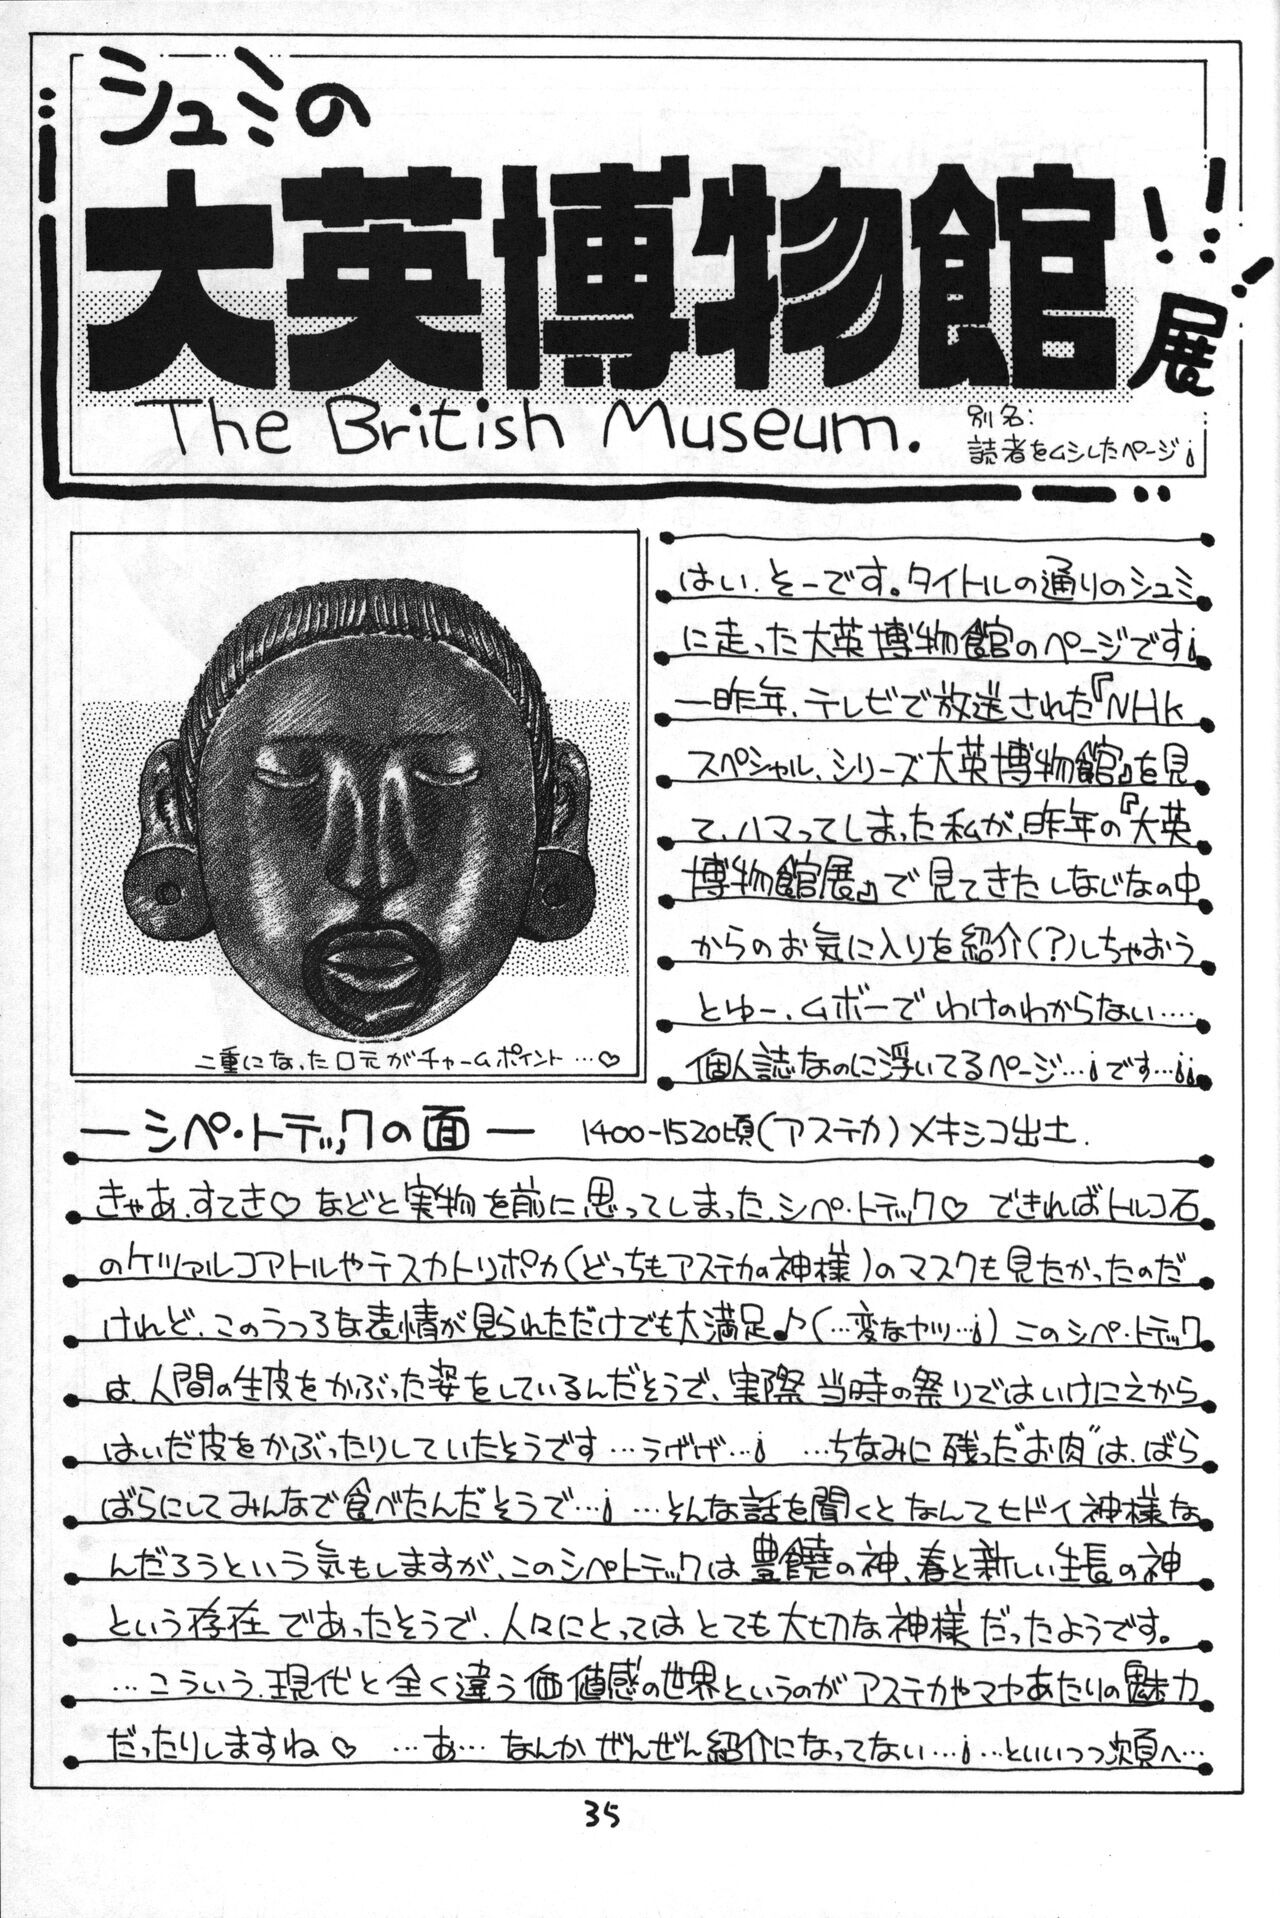 シュミの
大英博物館展
The British Museum.
別名:
読者をムシしたページ
はい、そーです。タイトルの通りのシュミ
に走った大英博物館のページです
一昨年、テレビで放送された『NHK
スペシャル、シリーズ大英博物館』を見
て、ハマってしまった私が、昨年の『大英
博物館展』で見てきたしなじなの中
からのお気に入りを紹介(?)しちゃおう
とゆー、ムボーでわけのわからない…
個人誌なのに浮いてるページ…です…
二重になった口元がチャームポイント…♡
―シペ・トテックの面― 1400-1520頃(アステカ)メキシコ出土.
きゃあ、すてき♡などと実物を前に思ってしまった、シペ・トテック♡ できればトルコ石
のケツァルコアトルやテスカトリポカ(どっちもアステカの神様)のマスクも見たかったのだ
けれど、このうつろな表情が見られただけでも大満足♪(…変なヤツ…)このシペ・トテック
は、人間の生皮をかぶった姿をしているんだそうで、実際当時の祭りではいけにえから
はいだ皮をかぶったりしていたそうです…うげげ… …ちなみに残った"お肉"は、ばら
ばらにしてみんなで食べたんだそうで… …そんな話を聞くとなんてヒドイ神様な
んだろうという気もしますが、このシペトテックは豊饒の神、春と新しい生長の神
という存在であったそうで、人々にとってはとても大切な神様だったようです。
…こういう、現代と全く違う価値感の世界というのがアステカやマヤあたりの魅力
だったりしますね♡ …あ…なんかぜんぜん紹介になってない… …といいつつ次頁へ…
35